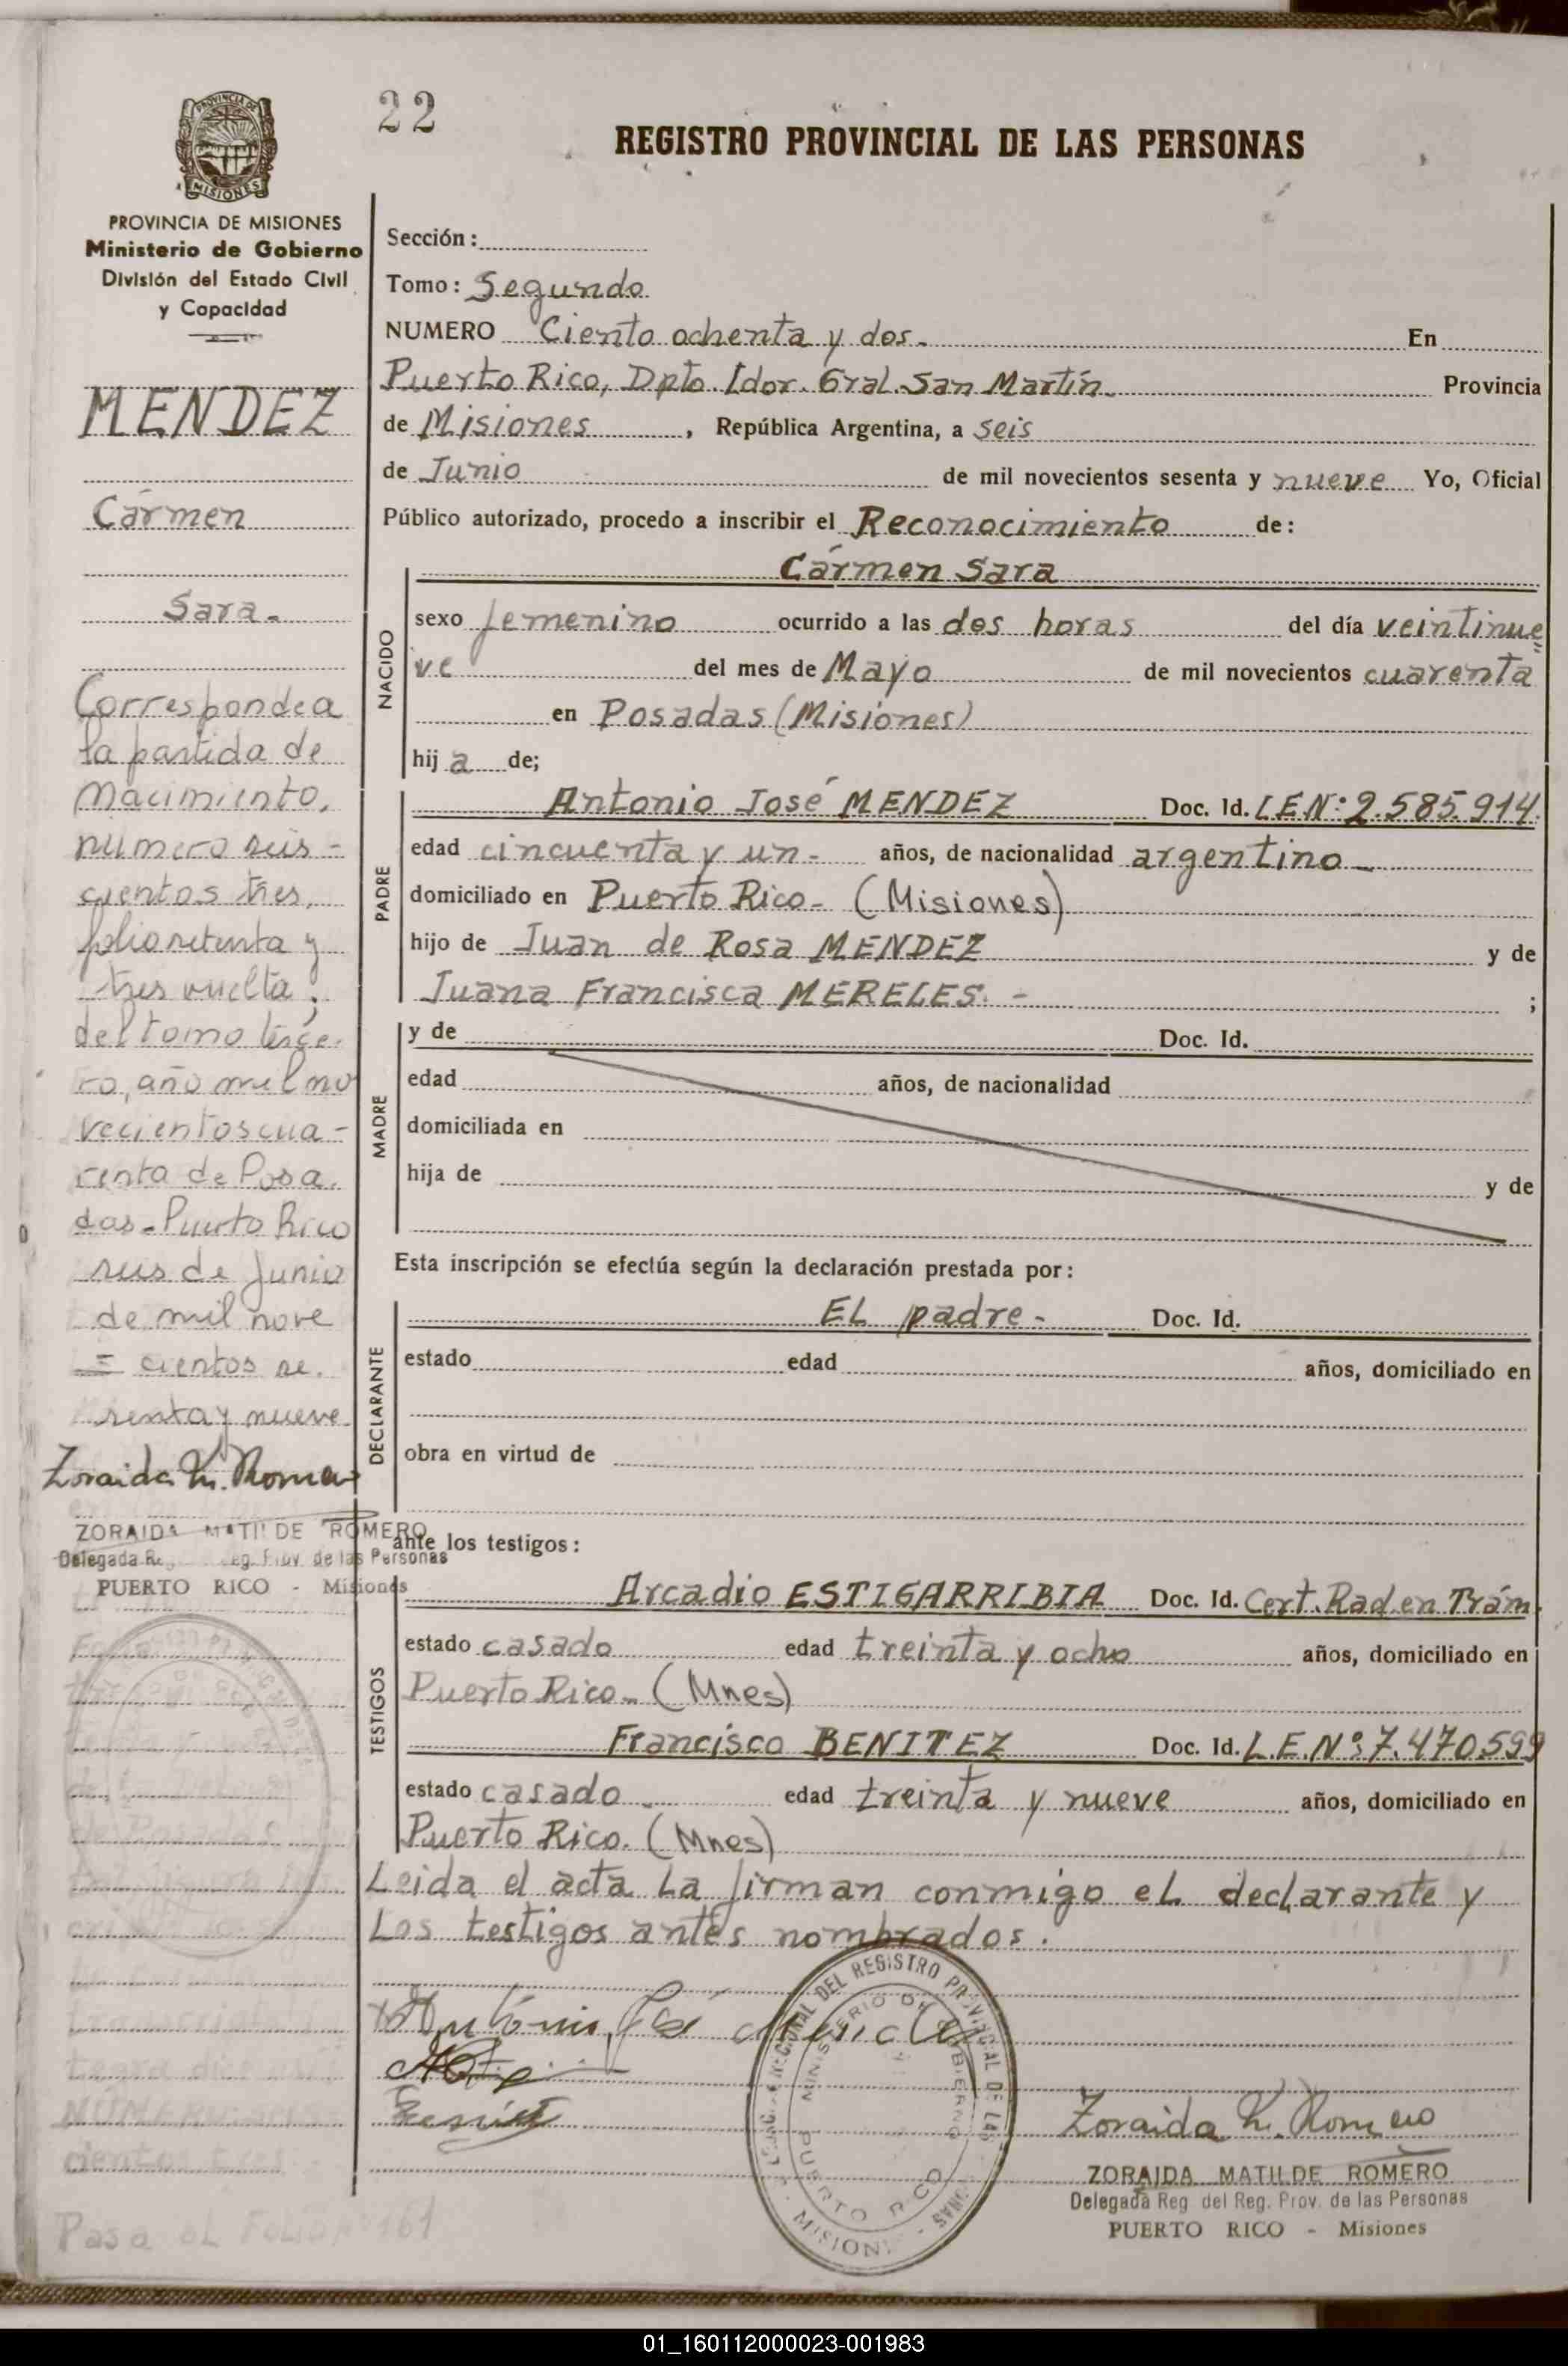 22
REGISTRO PROVINCIAL DE LAS PERSONAS
PROVINCIA DE MISIONES
Ministerio de Gobierno
División del Estado Civil
y Capacidad
MENDEZ
Cármen
Sara.-
Corresponde a
la partida de
Nacimiento,
número seis-
cientos tres,
folio setenta y
tres vuelta,
del tomo terce-
ro, año mil no
vecientos cua-
renta de Posa-
das - Puerto Rico
seis de Junio
de mil nove
= cientos se-
senta y nueve
Zoraida M. Romero
ZORAIDA MATILDE ROMERO
Delegada Reg. Prov. de las Personas
PUERTO RICO - Misiones
Sección:
Tomo: Segundo
NUMERO Ciento ochenta y dos.- En
Puerto Rico, Dpto. Ldor. Gral. San Martín.- Provincia
de Misiones, República Argentina, a seis
de Junio de mil novecientos sesenta y nueve Yo, Oficial
Público autorizado, procedo a inscribir el Reconocimiento de:
NACIDO
Cármen Sara
sexo femenino ocurrido a las dos horas del día veintinue
ve del mes de Mayo de mil novecientos cuarenta
en Posadas (Misiones)
hija de;
PADRE
Antonio José MENDEZ Doc. Id. L.E.Nº: 2.585.914.
edad cincuenta y un.- años, de nacionalidad argentino.-
domiciliado en Puerto Rico.- (Misiones)
hijo de Juan de Rosa MENDEZ y de
Juana Francisca MERELES.- ;
MADRE
y de Doc. Id.
edad años, de nacionalidad
domiciliada en
hija de y de
Esta inscripción se efectúa según la declaración prestada por:
DECLARANTE
EL padre.- Doc. Id.
estado edad años, domiciliado en
obra en virtud de
ante los testigos:
TESTIGOS
Arcadio ESTIGARRIBIA Doc. Id. Cert. Rad. en Trám.
estado casado edad treinta y ocho años, domiciliado en
Puerto Rico.- (Mnes)
Francisco BENITEZ Doc. Id. L.E.Nº: 7.470.599
estado casado.- edad treinta y nueve años, domiciliado en
Puerto Rico. (Mnes)
Leida el acta La firman conmigo el declarante y
Los testigos antes nombrados.
Antonio José Mendez
DEL REGISTRO PROVINCIAL DE LAS
MINISTERIO DE GOBIERNO
PUERTO RICO
MISIONES
Zoraida M. Romero
ZORAIDA MATILDE ROMERO
Delegada Reg. del Reg. Prov. de las Personas
PUERTO RICO - Misiones
Pasa al Folio Nº 161
01_160112000023-001983